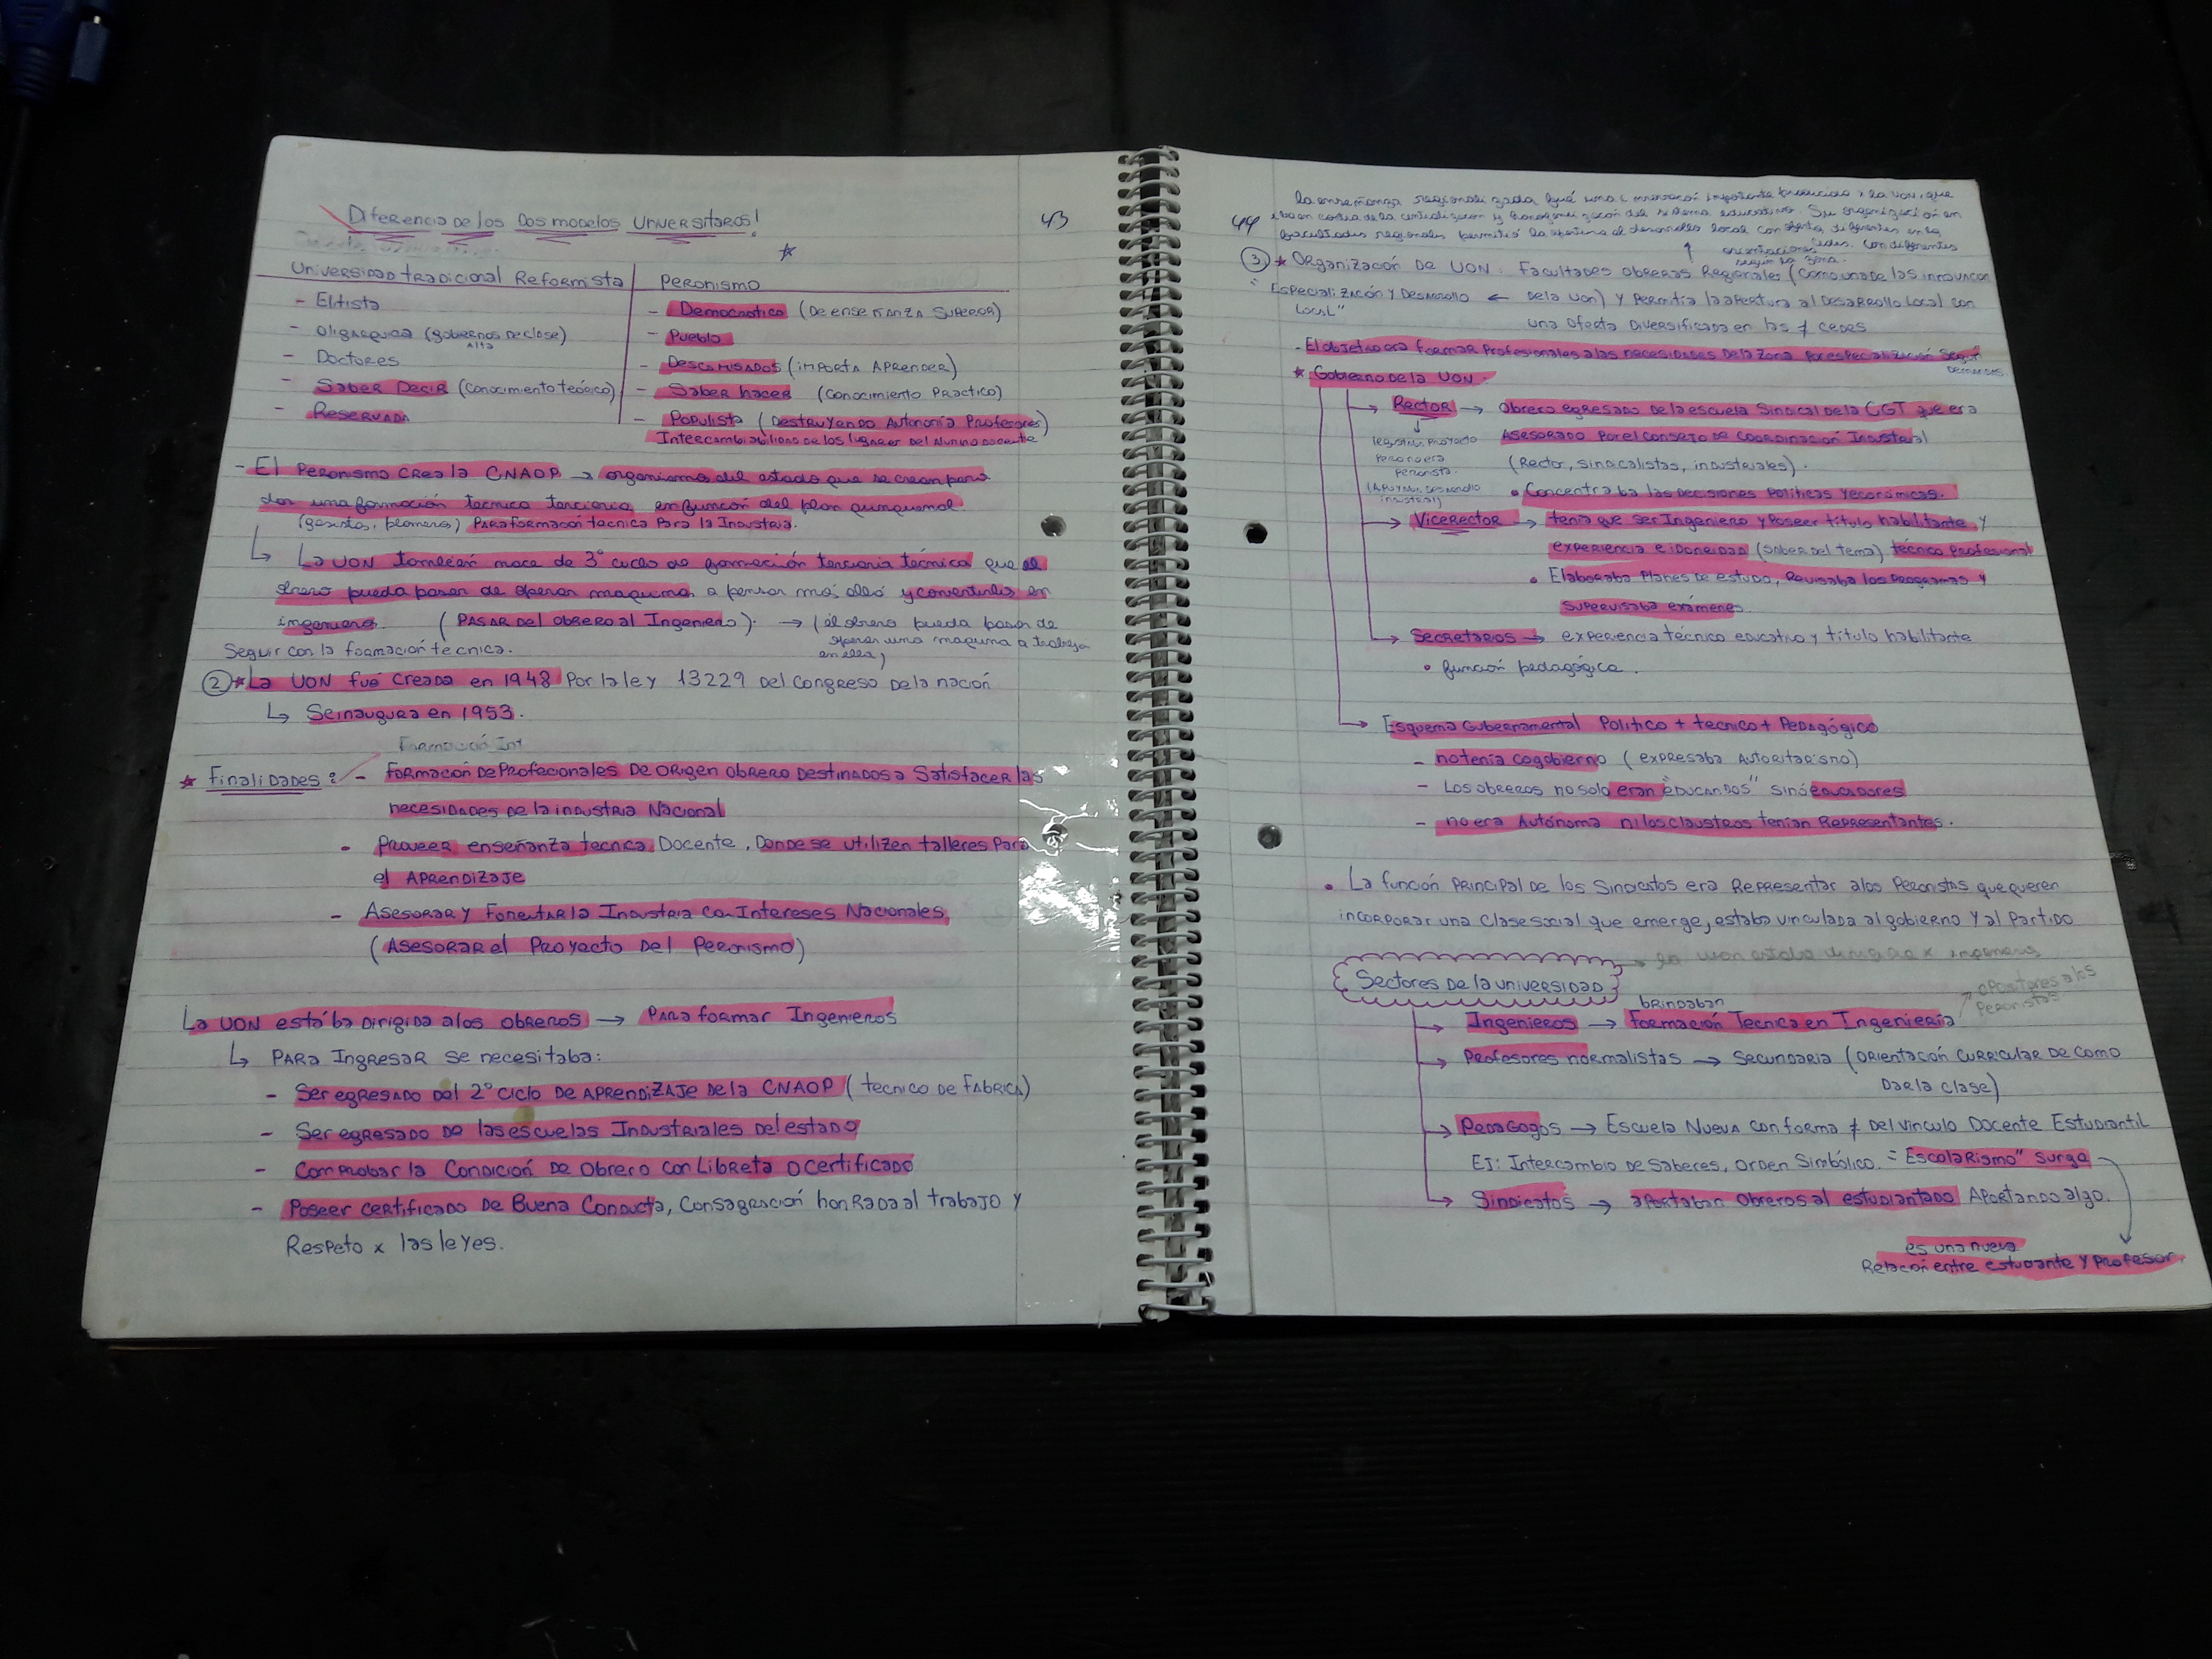 43
Diferencia de los Dos modelos Universitarios!
Universidad tradicional Reformista
- Elitista
- Oligarquica (gobiernos de clase)
Alta
- Doctores
- Saber Decir (conocimiento teórico)
- Reservada
Peronismo
- Democratico (De enseñanza superior)
- Pueblo
- Descamisados (importa Aprender)
- Saber hacer (conocimiento Practico)
- Populista (Destruyendo Autonomía Profesores)
Intercambiabilidad de los lugares del Alumno docente
- El Peronismo crea la CNAOP → organismo del estado que se crean para
dar una formación tecnica terciaria en función del plan quinquenal.
(gasista, plomero) Para formación tecnica Para la Industria.
↳ La UON también nace de 3° ciclo de formación terciaria técnica que el
obrero pueda pasar de operar maquina a pensar más allá y convertirlos en
ingenieros. (Pasar del obrero al Ingeniero). → (el obrero pueda pasar de
operar una maquina a trabajar
en ella)
Seguir con la formación tecnica.
② ★ La UON fué creada en 1948 Por la ley 13229 Del Congreso de la nación
↳ Se inaugura en 1953.
Formación Int
★ Finalidades: - Formación de Profecionales de origen obrero Destinados a Satisfacer las
necesidades de la industria Nacional
• Proveer enseñanza tecnica Docente, Donde se utilizen talleres Para
el Aprendizaje
- Asesorar y Fomentar la Industria con Intereses Nacionales
(Asesorar el Proyecto Del Peronismo)
La UON estába Dirigida a los obreros → Para formar Ingenieros
↳ Para Ingresar se necesitaba:
- Ser egresado Del 2° ciclo De Aprendizaje De la CNAOP (tecnico de Fabrica)
- Ser egresado de las escuelas Industriales Del estado
- Comprobar la Condición De Obrero con Libreta o certificado
- Poseer certificado De Buena Conducta, Consagración honRada al trabajo y
Respeto x las leyes.
44
la enseñanza regionalizada fué una innovación importante producida x la UON, que
iba en contra de la centralización y homogeneización del sistema educativo. Su organización en
facultades regionales permitió la apertura al desarrollo local con ofertas diferentes en las
sedes. Con diferentes
orientaciones
según la zona.
③ ★ Organización De UON: Facultades Obreras Regionales (como una de las innovación
De la UON) y Permitia la apertura al Desarrollo Local con
una oferta Diversificada en las ≠ cedes
"Especialización y Desarrollo ←
Local"
- El objetivo era formar Profesionales a las necesidades De la zona Por especialización según
Demandas.
★ Gobierno de la UON
→ Rector → Obrero egresado De la escuela Sindical de la CGT que era
Asesorado Por el Consejo de Coordinación Industrial
(Rector, sindicalistas, industriales).
Proyecto
Peronista.
(Apoyar Desarrollo
industrial)
• Concentraba las Decisiones Políticas y económicas.
→ Vicerector → tenia que ser Ingeniero y Poseer título habilitante y
experiencia e idoneidad (saber del tema) técnico Profesional
• Elaboraba Planes de estudio, Revisaba los Programas y
supervisaba exámenes.
→ Secretarios → experiencia técnico educativo y título habilitante
• función pedagógica.
→ Esquema Gubernamental Politico + tecnico + Pedagógico
- no tenía cogobierno (expresaba Autoritarismo)
- Los obreros no solo eran "educandos" sinó educadores
- no era Autónoma ni los claustros tenían Representantes.
• La función Principal De los Sindicatos era Representar a los Peronistas que queren
incorporar una clase social que emerge, estaba vinculada al gobierno y al Partido
Sectores de la universidad → la UON estaba dirigida x ingenieros
→ Ingenieros → brindaban Formación Tecnica en Ingeniería
a los
Peronistas
→ Profesores normalistas → secundaria (orientación curricular de como
Dar la clase)
→ Pedagogos → Escuela Nueva con forma ≠ Del vinculo Docente Estudiantil
Ej: Intercambio de Saberes, orden Simbólico. "Escolarismo" surga
→ Sindicatos → aportaban obreros al estudiantado Aportando algo.
es una nueva
Relación entre estudiante y Profesor